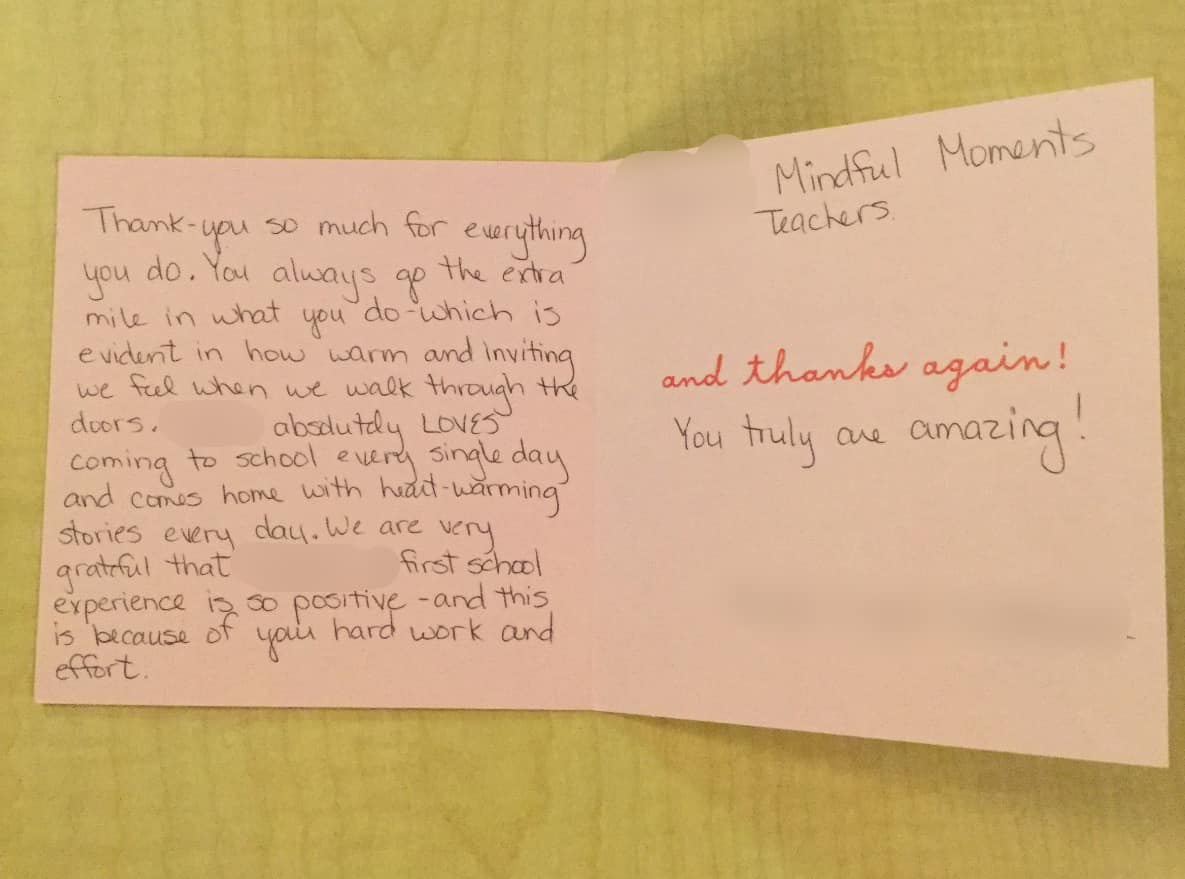 Thank-you so much for everything
you do. You always go the extra
mile in what you do-which is
evident in how warm and inviting
we feel when we walk through the
doors. absolutely LOVES
coming to school every single day
and comes home with heart-warming
stories every day. We are very
grateful that first school
experience is so positive -and this
is because of your hard work and
effort.
Mindful Moments
Teachers.
and thanks again!
You truly are amazing!